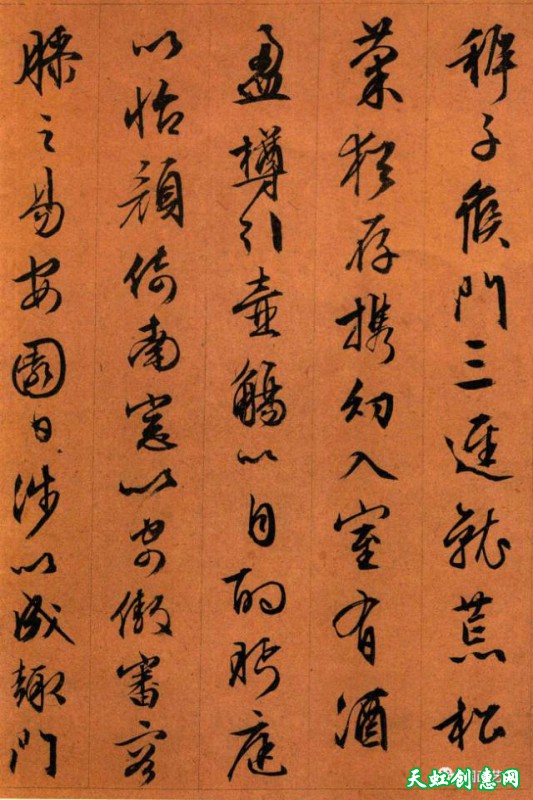 稚子候門三逕就荒松
菊猶存携幼入室有酒
盈樽引壺觴以自酌眄庭
以怡顏倚南窓以寄傲審容
膝之易安園日涉以成趣門
天虹创惠网